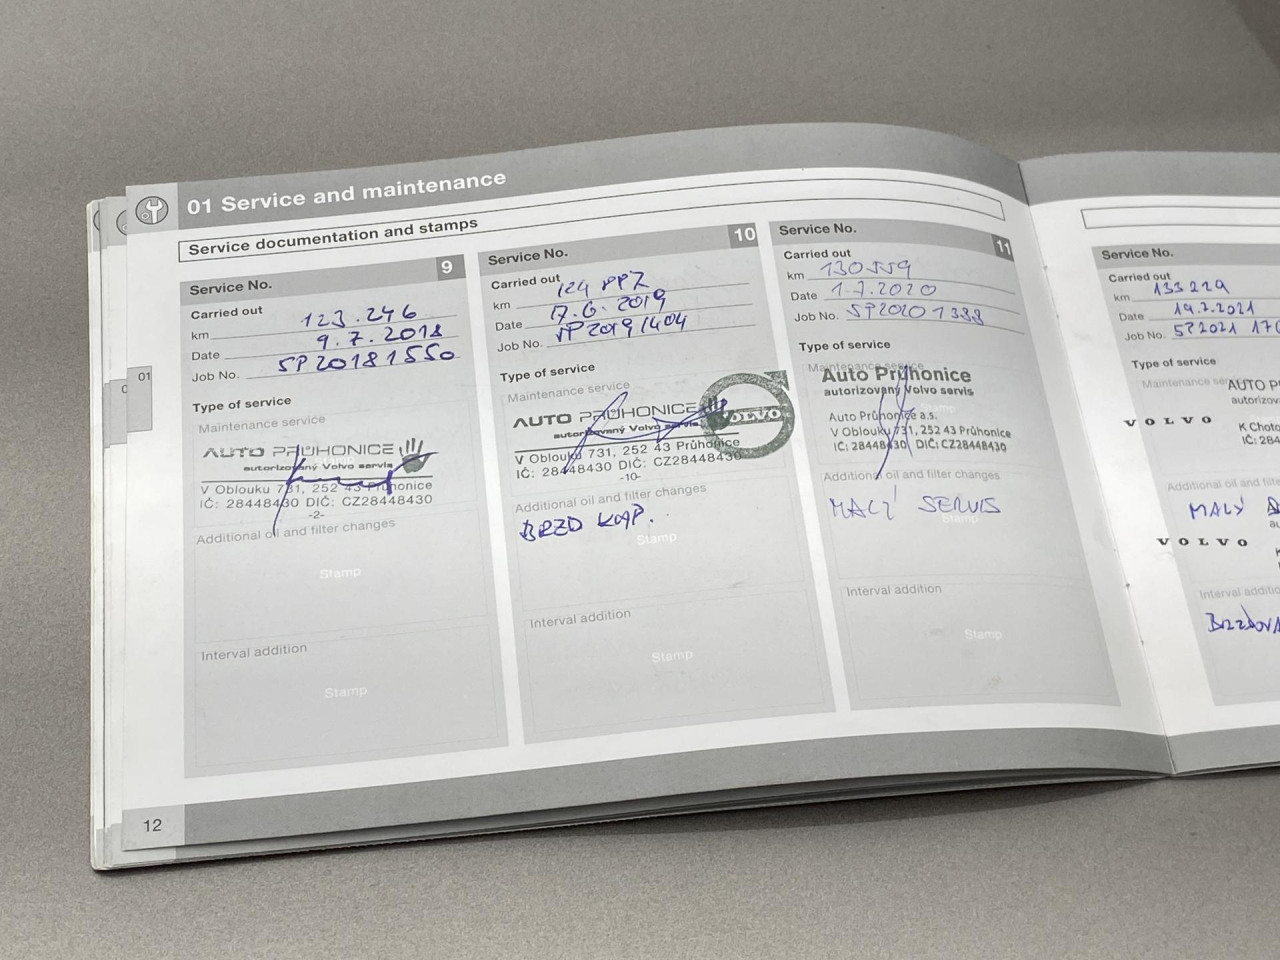 01 Service and maintenance
Service documentation and stamps
01
Service No. 9
Carried out
km 123.246
Date 9.7.2018
Job No. SP20181550
Type of service
Maintenance service
AUTO PRŮHONICE
autorizovaný Volvo servis
V Oblouku 731, 252 43 Průhonice
IČ: 28448430 DIČ: CZ28448430
-2-
Additional oil and filter changes
Stamp
Interval addition
Stamp
Service No. 10
Carried out
km 124
Date 17.6.2019
Job No. VP2019/1404
Type of service
Maintenance service
AUTO PRŮHONICE
autorizovaný Volvo servis
VOLVO
V Oblouku 731, 252 43 Průhonice
IČ: 28448430 DIČ: CZ28448430
-10-
Additional oil and filter changes
BRZD KAP.
Stamp
Interval addition
Stamp
Service No. 11
Carried out
km 130559
Date 1.7.2020
Job No. SP20201388
Type of service
Maintenance service
Auto Průhonice
autorizovaný Volvo servis
Stamp
Auto Průhonice a.s.
V Oblouku 731, 252 43 Průhonice
IČ: 28448430 DIČ: CZ28448430
Additional oil and filter changes
MALÝ SERVIS
Stamp
Interval addition
Stamp
12
Service No.
Carried out
km 133229
Date 19.7.2021
Job No.
Type of service
Maintenance
AUTO P
autorizov
VOLVO
K Choto
IČ: 284
Additional oil and filter
MALÝ
VOLVO
Interval additio